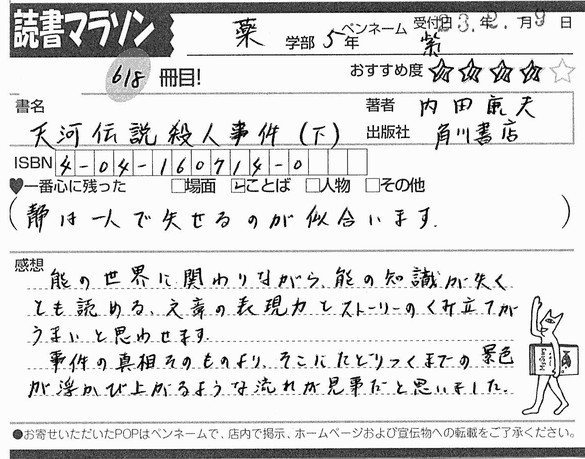 読書マラソン
薬 学部 5年 ペンネーム 紫 受付日 23年 2月 9日
618 冊目! おすすめ度 ★★★★☆
書名 著者 内田康夫
天河伝説殺人事件(下) 出版社 角川書店
ISBN 4-04-160714-0
♥一番心に残った □場面 ☑ことば □人物 □その他
(静は一人で失せるのが似合います.)
感想
能の世界に関わりながら、能の知識が失く
とも読める、文章の表現力とストーリーのくみ立てが
うまいと思わせます.
事件の真相そのものより、そこにたどりつくまでの景色
が浮かび上がるような流れが見事だと思いました.
●お寄せいただいたPOPはペンネームで、店内で掲示、ホームページおよび宣伝物への転載をご了承ください。